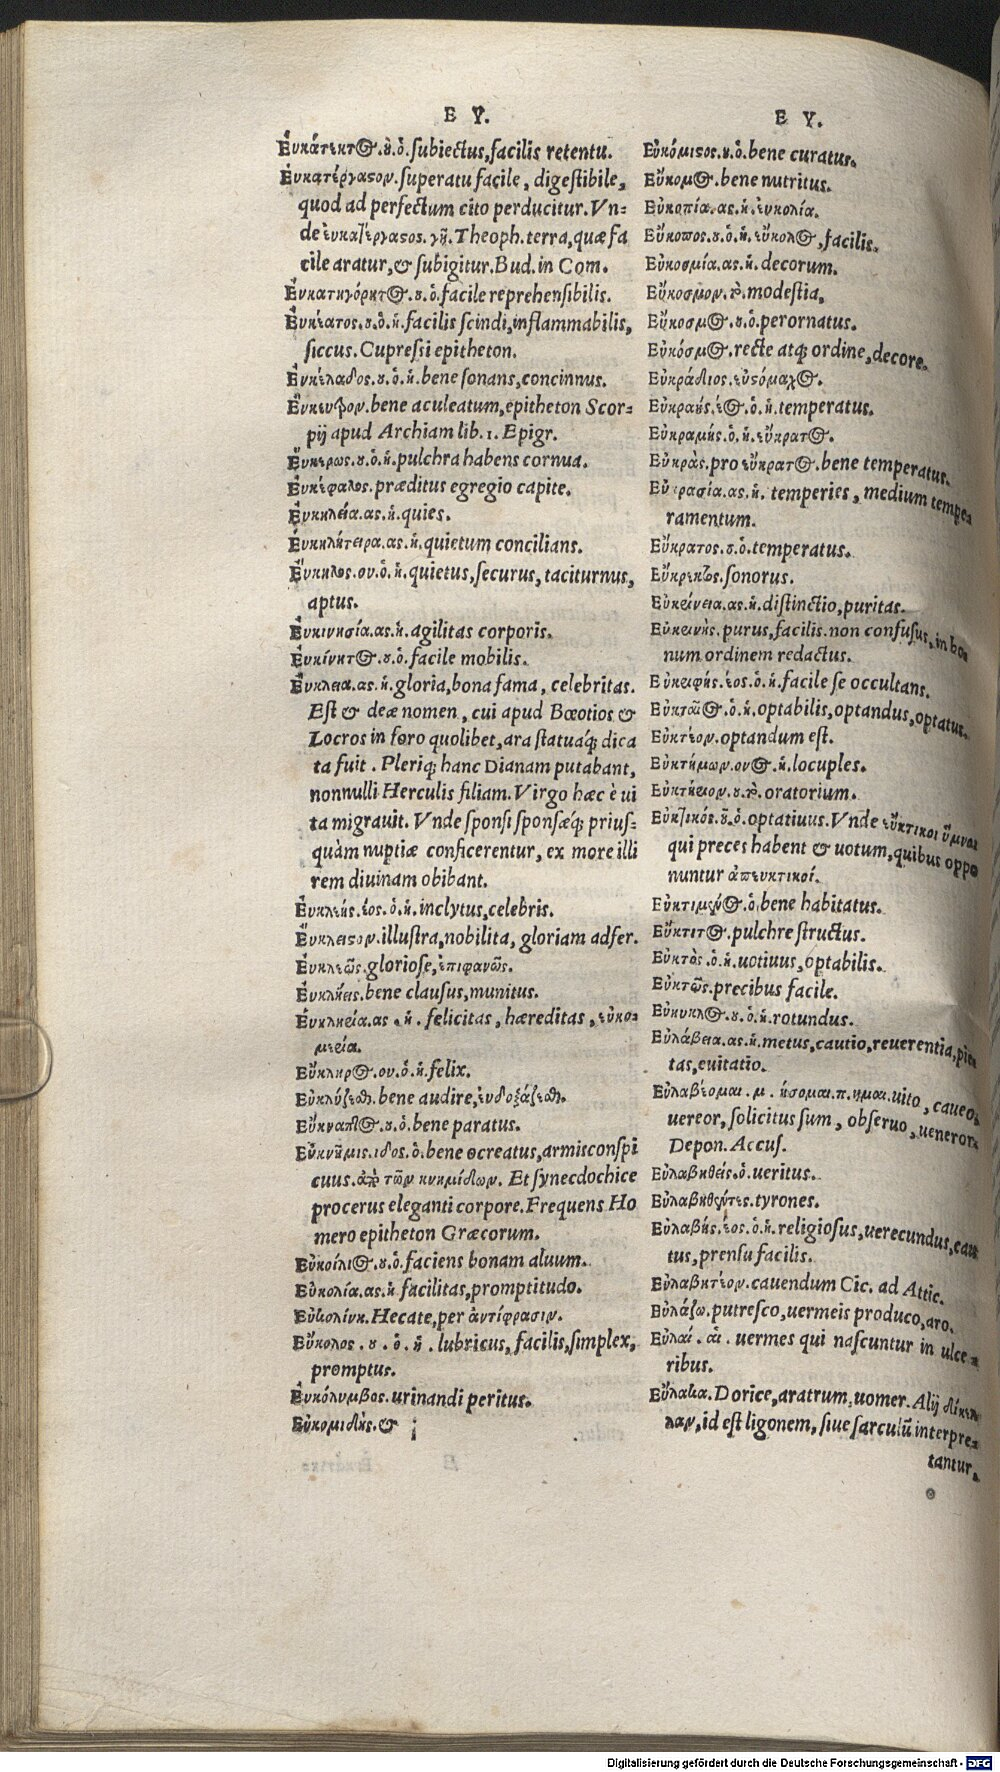 Ε Υ.
Ἐυκάτεκτος.ου.ὁ.subiectus,facilis retentu.
Ἐυκατέργαστον.superatu facile, digestibile,
quod ad perfectum cito perducitur.Vn-
de ἐυκατέργαστος.γῆ.Theoph.terra,quæ fa
cile aratur,& subigitur.Bud.in Com.
Ἐυκατηγόρητος.ου.ὁ.facile reprehensibilis.
Ἐυκέατος.ου.ὁ.ἡ.facilis scindi,inflammabilis,
siccus.Cupressi epitheton.
Ἐυκέλαδος.ου.ὁ.ἡ.bene sonans,concinnus.
Ἔυκεντρον.bene aculeatum,epitheton Scor-
pij apud Archiam lib.1.Epigr.
Ἔυκερως.ου.ὁ.ἡ.pulchra habens cornua.
Ἐυκέφαλος.præditus egregio capite.
Ἐυκηλεία.ας.ἡ.quies.
Ἐυκηλήτειρα.ας.ἡ.quietum concilians.
Ἔυκηλος.ου.ὁ.ἡ.quietus,securus,taciturnus,
aptus.
Ἐυκινησία.ας.ἡ.agilitas corporis.
Ἐυκίνητος.ου.ὁ.facile mobilis.
Ἔυκλεια.ας.ἡ.gloria,bona fama, celebritas.
Est & deæ nomen, cui apud Bœotios &
Locros in foro quolibet,ara statuáq; dica
ta fuit. Pleriq; hanc Dianam putabant,
nonnulli Herculis filiam.Virgo hæc è ui
ta migrauit. Vnde sponsi sponsæq; prius-
quàm nuptiæ conficerentur, ex more illi
rem diuinam obibant.
Ἐυκλεής.έος.ὁ.ἡ.inclytus,celebris.
Ἔυκλεισον.illustra,nobilita, gloriam adfer.
Ἐυκλεῶς.gloriose,ἐπιφανῶς.
Ἐυκλήεις.bene clausus,munitus.
Ἐυκληρία.ας.ἡ. felicitas, hæreditas, εὐκο-
μιεία.
Εὔκληρος.ου.ὁ.ἡ.felix.
Εὐκλύζεσθ. bene audire,ἐυδοξάζεσθ.
Εὔκναπτος.ου.ὁ.bene paratus.
Εὐκνήμις.ιδος.ὁ.bene ocreatus,armisconspi
cuus.ἀπὸ τῶν κνημίδων. Et synecdochice
procerus eleganti corpore.Frequens Ho
mero epitheton Græcorum.
Εὐκοίλιος.ου.ὁ.faciens bonam aluum.
Εὐκολία.ας.ἡ facilitas,promptitudo.
Εὐκολίνη.Hecate,per ἀντίφρασιν.
Εὔκολος.ου.ὁ.ἡ. lubricus, facilis,simplex,
promptus.
Εὐκόλυμβος.urinandi peritus.
Εὐκομιδὴς.&
Ε Υ.
Εὐκόμιστος.ου.ὁ.bene curatus.
Εὔκομος.bene nutritus.
Εὐκοπία.ας.ἡ.ἐυκολία.
Εὔκοπος.ου.ὁ.ἡ.εὔκολος,facilis.
Εὐκοσμία.ας.ἡ.decorum.
Εὔκοσμον.τὸ.modestia,
Εὔκοσμος.ου.ὁ.perornatus.
Εὐκόσμως.recte atq; ordine,decore.
Εὐκράδιος.εὐστόμαχος.
Εὐκραὴς.έος.ὁ.ἡ.temperatus.
Εὐκραμὴς.ὁ.ἡ.εὔκρατος.
Εὐκρὰς.pro εὔκρατος.bene temperatus.
Εὐκρασία.ας.ἡ. temperies, medium tempe-
ramentum.
Εὔκρατος.ου.ὁ.temperatus.
Εὔκρεκτος.sonorus.
Εὐκρίνεια.ας.ἡ.distinctio,puritas.
Εὐκρινὴς.purus,facilis.non confusus,in bo-
num ordinem redactus.
Εὐκρυφὴς.έος.ὁ.ἡ.facile se occultans.
Εὐκταῖος.ὁ.ἡ.optabilis,optandus,optatus.
Εὐκτέον.optandum est.
Εὐκτήμων.ονος.ἡ.locuples.
Εὐκτήριον.ου.τὸ.oratorium.
Εὐκτικός.οῦ.ὁ.optatiuus.Vnde εὔκτικοι ὕμνοι
qui preces habent & uotum,quibus oppo
nuntur ἀπευκτικοί.
Εὐκτίμενος.ὁ.bene habitatus.
Εὔκτιτος.pulchre structus.
Εὐκτὸς.ὁ.ἡ.uotiuus,optabilis.
Εὐκτῶς.precibus facile.
Εὔκυκλος.ου.ὁ.ἡ.rotundus.
Εὐλάβεια.ας.ἡ.metus,cautio,reuerentia,pie
tas,euitatio.
Εὐλαβέομαι.μ.ήσομαι.π.ημαι.uito, caueo,
uereor, solicitus sum, obseruo, ueneror.
Depon.Accus.
Εὐλαβηθείς.ὁ.ueritus.
Εὐλαβηθέντες.tyrones.
Εὐλαβὴς.έος.ὁ.ἡ.religiosus,uerecundus,cau
tus,prensu facilis.
Εὐλαβητέον.cauendum Cic. ad Attic.
Εὐλάζω.putresco,uermeis produco,aro.
Εὐλαί.αἱ.uermes qui nascuntur in ulce-
ribus.
Εὔλακα.Dorice,aratrum,uomer.Alij δίκελ
λαν,id est ligonem, siue sarculũ interpre-
tantur.
Digitalisierung gefördert durch die Deutsche Forschungsgemeinschaft - DFG